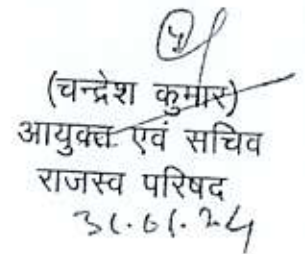 (चन्द्रेश कुमार)
आयुक्त एवं सचिव
राजस्व परिषद
31.01.24